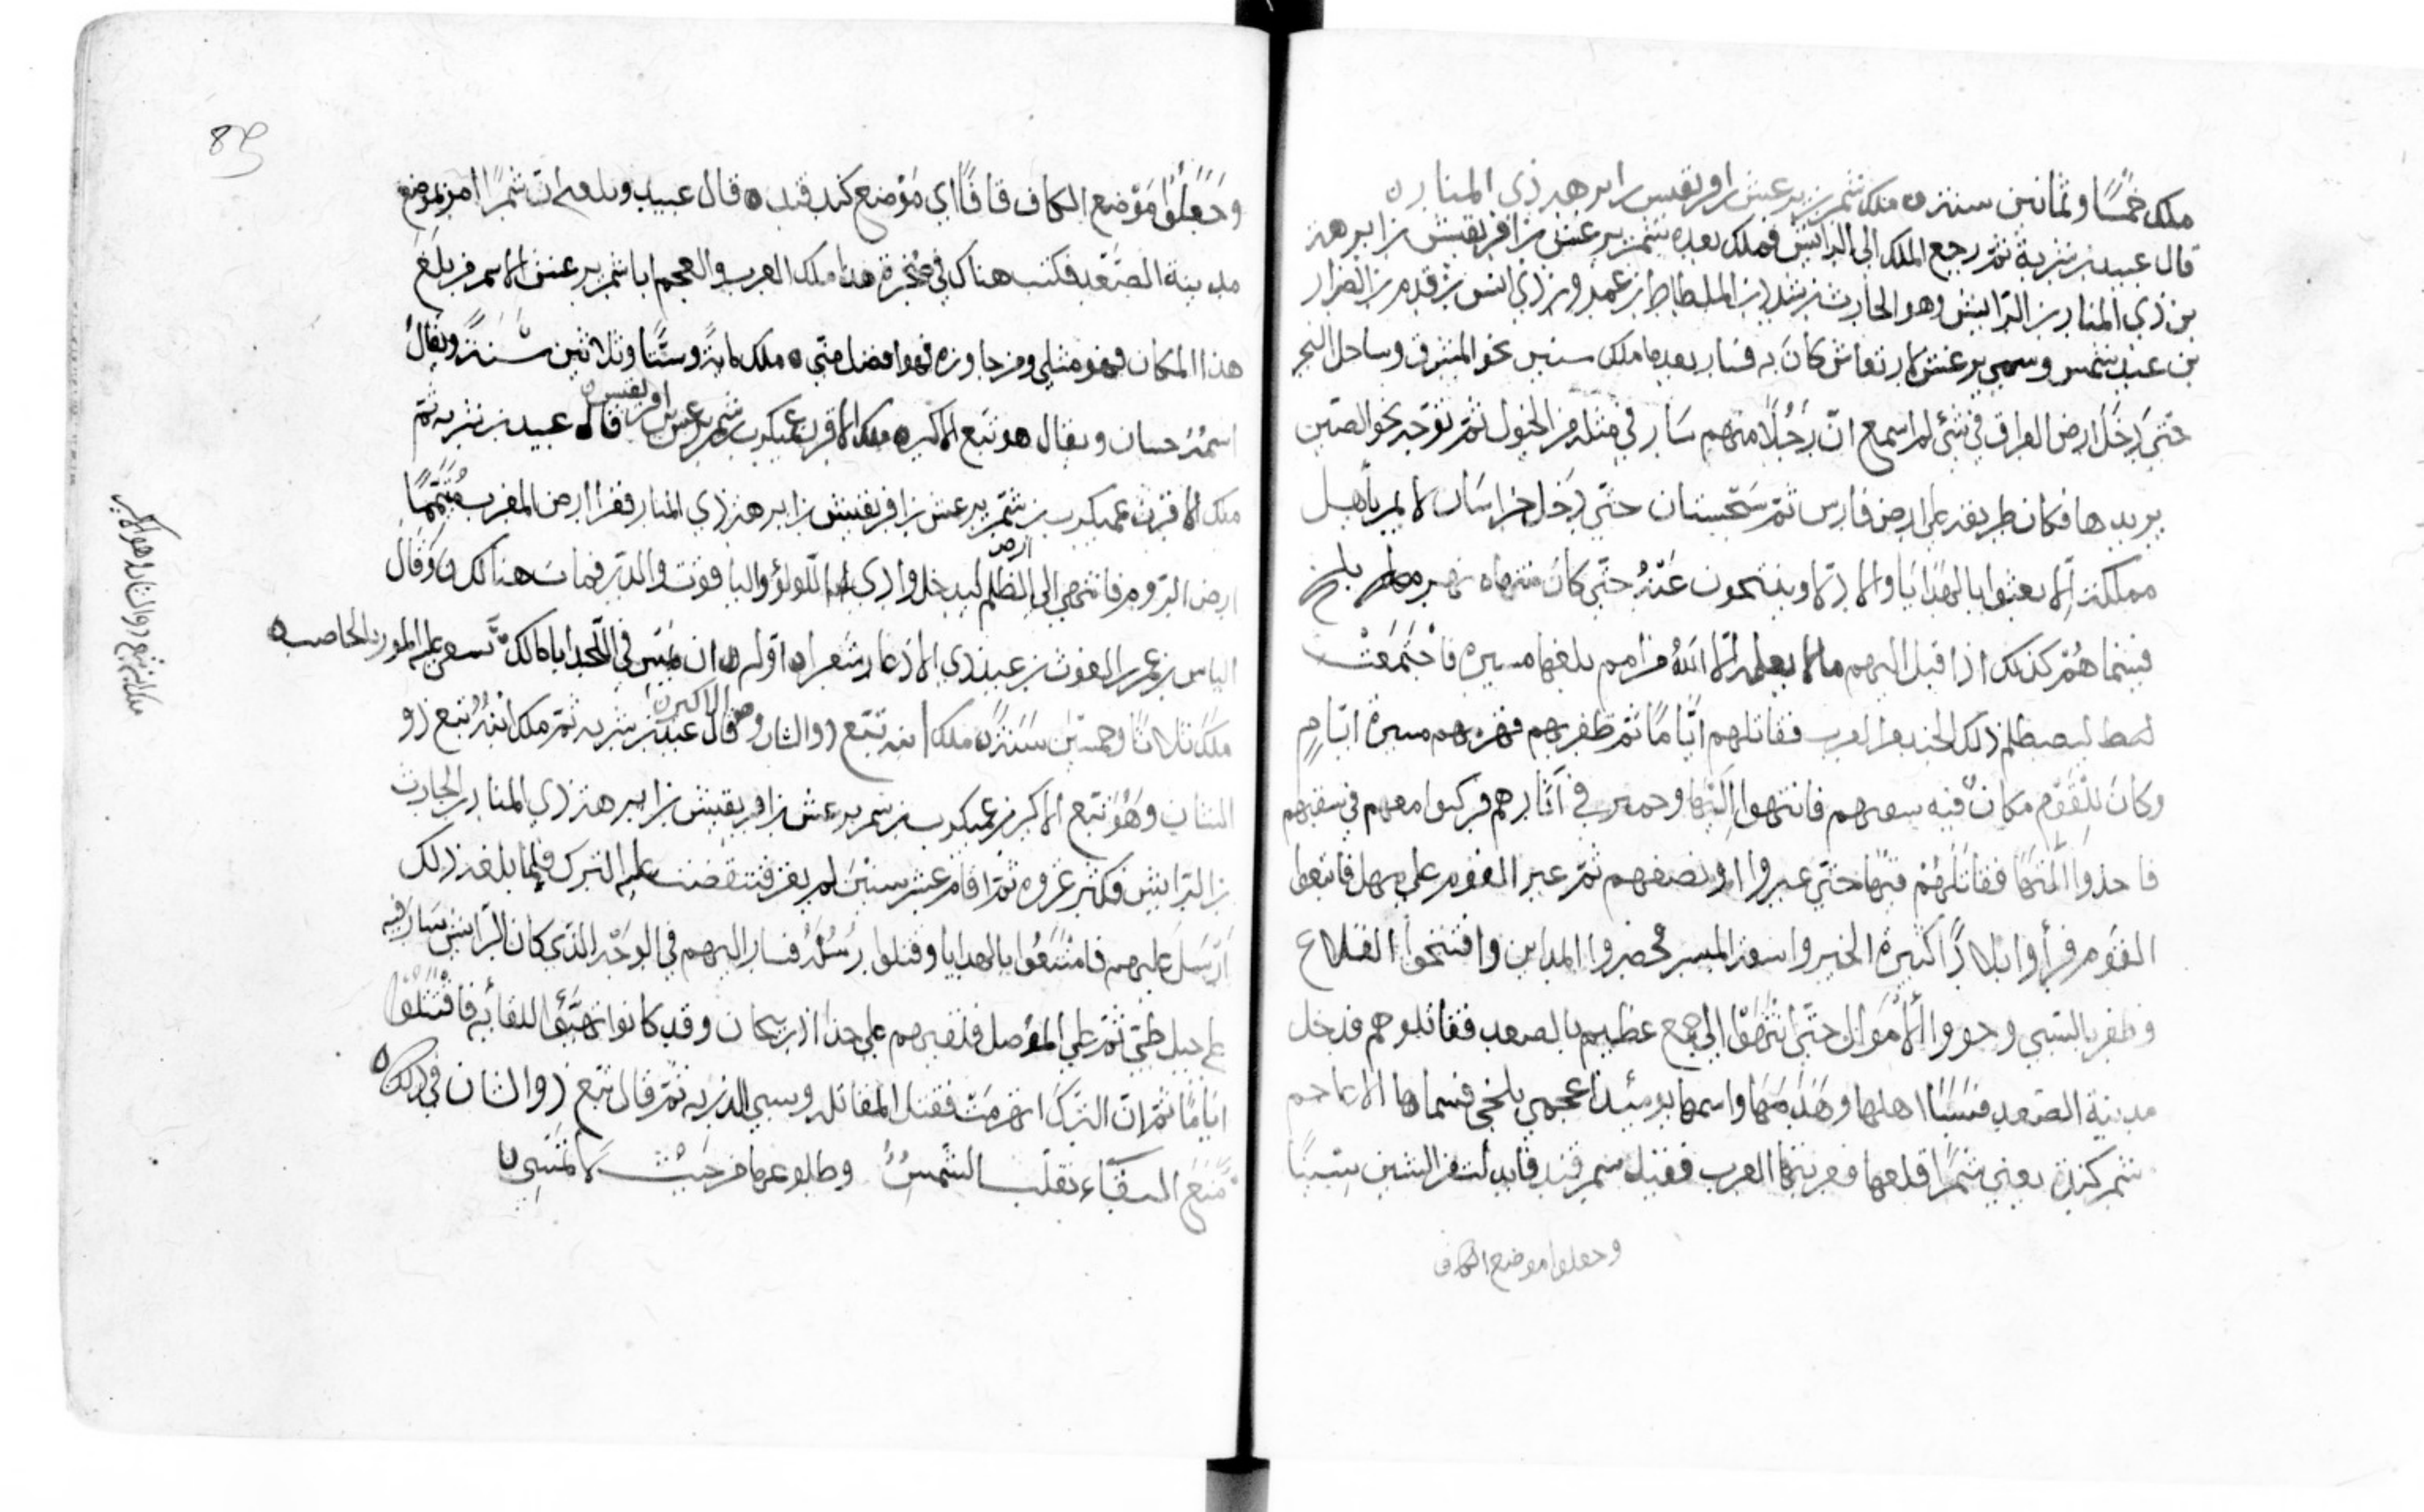 ملك خمسًا وثمانين سنة ملك شمر يرعش بن افريقيس بن ابرهة ذي المنار
قال عبيد بن شرية ثمّ رجع الملك الى الرائش فملك بعده شمر يرعش بن افريقيش بن ابرهة
بن ذي المنار بن الرايش وهو الحارث بن شدد بن الملطاط بن عمرو بن ذي انس بن قدم بن الصوار
بن عبد شمس وسمي يرعش لارتعاش كان به فسار بعد ما ملك سنين نحو المشرق وساحل البحر
حتى دخل ارض العراق في شئ لم اسمع انّ رجُلًا منهم سار في مثله من الخيول ثمّ توجّه نحو الصين
يريدها فكان طريقه على ارض فارس ثمّ سجستان حتّى دخل خراسان لا يمرّ باهل
مملكة الا بعثوا بالهدايا والادلا وينتحون عنه حتّى كان منتهاه نهر بلخ
فبينما هُمْ كذلك اذا قبل اليهم ما لا يعلمه الّا الله من امم بلغها مسيره فاجتمعت
ذلك الجند العرب فقاتلهم ايّامًا ثمّ ظفر بهم فهزمهم مسيرة ايّامٍ
وكان للقوم مكان فيه سفنهم فانتهوا اليها وحمير في آثارهم فركبوا معهم في سفنهم
فاخذوا فقاتلهُمْ فيها حتّى عبروا او نصفهم ثمّ عبر القوم على مهل فاتبعوا
القوم فرأوا بلادًا كثيرة الخير واسعة الميسر فحصروا المداين وافتتحوا القلاع
وظفر بالسّبي وحووا الأمْوَال حتّى انتهوا الى جمع عظيم بالصعد فقاتلوهم فدخل
مدينة الصّعد فسَبَا اهلها وهَدَمَهَا واسمها يومئذ اعجمي بلخي فسماها الاعاجم
شمر كندة يعني شمرًا قلعها فعربتها العرب فقيل سمرقند فابدلت من الشين سينًا
وجعلوا موضع الكاف
وجَعَلُوا مَوْضع الكاف قافًا اي مَوْضع كند قند قال عبيد وبلغه انّ شمرًا امر بموضع
مدينة الصّغد فكتب هناك في صخرة هذا ملك العرب والعجم اباشمر يرعش الاسمر فمن بلَغَ
هذا المكان فهو مثلي ومن جاوزه فهو افضل منّي ملك مايةً وستًّا وثلاثين سَنَةً ويقالُ
اسمُه حسان ويقال هو تبع الاكبر ملك الاقرن عميكرب شمر يرعش بن افريقيس قال عبيد بن شريه ثمّ
ملك الاقرن عميكرب بن شمّر يرعش بن افريقيش بن ابرهة ذي المنار فغزا ارض المغرب مُتَمِّمًا
ارض الرّوم فانتهى الى ارض الظلم ليدخل وادي اللؤلؤ والياقوت والدّر فمات هنالك وقَال
الياس بن عمرو الغوث بن عبد ذي الاذعار شعرا اوّله ان ميّتى في اللّحد
ملك ثلاثًا وخمسين سَنَةً ملك ابنه تبّع ذو الشان وهو الاكبر قال عبيد بن شريه ثمّ ملك ابنُهُ تبع ذو
الشان وهُوَ تبع الاكبر بن عميكرب بن شمر يرعش بن افريقيش بن ابرهة ذي المنار بن الحارث
بن الرّايش فكثر غزوه ثمّ اقام عشر سنين لم يغز فتنقضت عليه الترك فلمّا بلغه ذلك
أرْسَلَ عليهم فامْتَنَعُوا بالهدايا وقتلوا رَسُلَهُ فسار اليهم في الوجه الذّي كان الرّايش سار فيه
على جبل طيّ ثمّ على المؤصل فلقيهم على حدّ اذربيجان وقد كانوا تهَيّئُوا للقايه فاقْتَتَلُوا
ايّامًا ثمّ انّ الترك انهزمَت فقتل المقاتله وسبي الذرّيه ثمّ قال تبع ذو الشان في ذلك
مَنعَ البقَاءَ تقلّب الشّمسُ وطلوعها من حَيثُ لا تمْسِي
ملك ابنه تبع ذو الشان وهو الاكبر